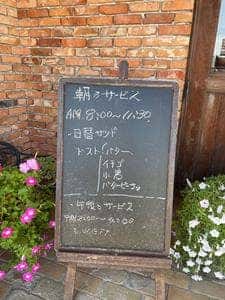 朝のサービス
AM.8:00〜11:30
・日替サンド
トースト バター
イチゴ
小倉
バターピーナツ
・午後のサービス